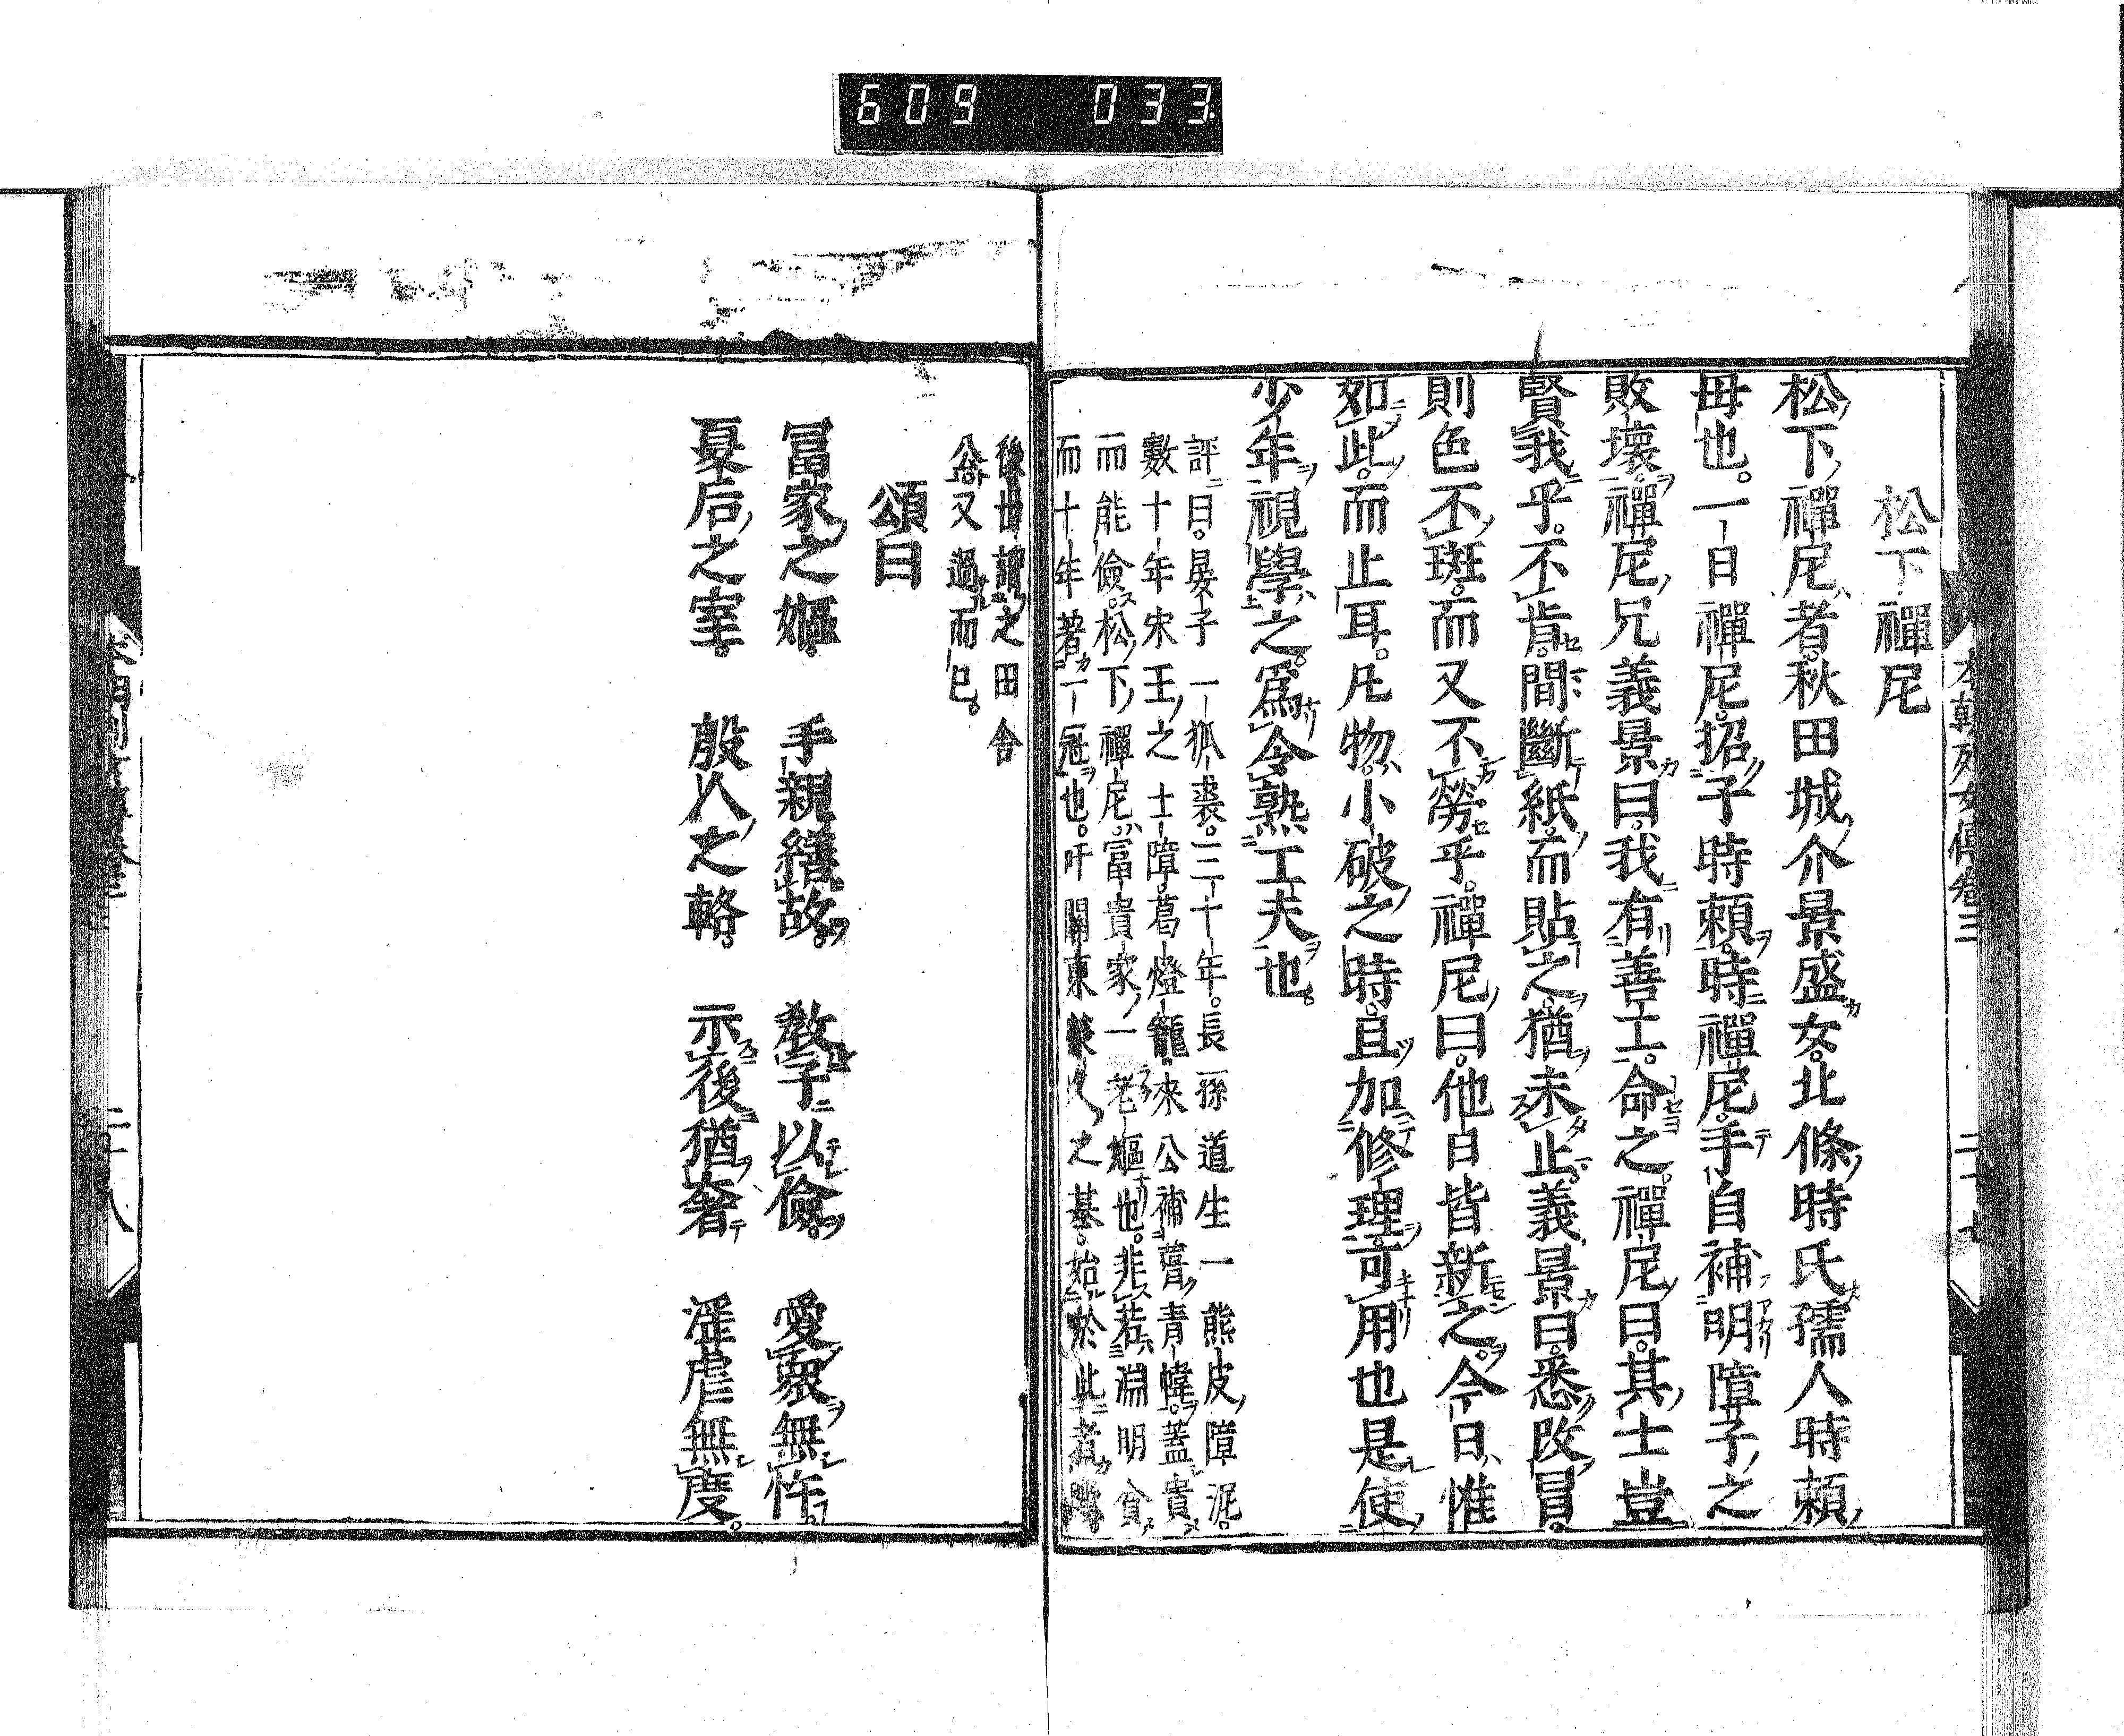 609 033
本朝列女傳卷三 二十七
松下禪尼
松下禪尼者。秋田城介景盛女。北條時氏孺人時賴
母也。一日禪尼招子時賴。時禪尼。手自補明障子之
敗壞。禪尼兄義景曰。我有善工。命之。禪尼曰。其士豈
賢我乎。不肯。間斷紙而貼之。猶未止。義景曰。悉改冒。
則色不斑。而又不勞乎。禪尼曰。他日皆新之。今日惟
如此。而止耳。凡物小破之時。且加修理。可用也。是使
少年視學之。爲令熟工夫也。
評曰。晏子一狐裘。三十年。長孫道生一熊皮障泥。
數十年宋王之士障。葛燈籠。來公補蕢青幃。蓋貴
而能儉。松下禪尼。富貴家一老嫗也。非若淵明貧
而十年著一冠也。吁關東之基。始於此者
後世謂之田舍
公又過而已。
頌曰
冨家之嫗。 手親繕故。 敎子以儉。 愛衆無忤。
夏后之宰。 殷人之輅。 示後猶奢 淫虐無度。
二十八